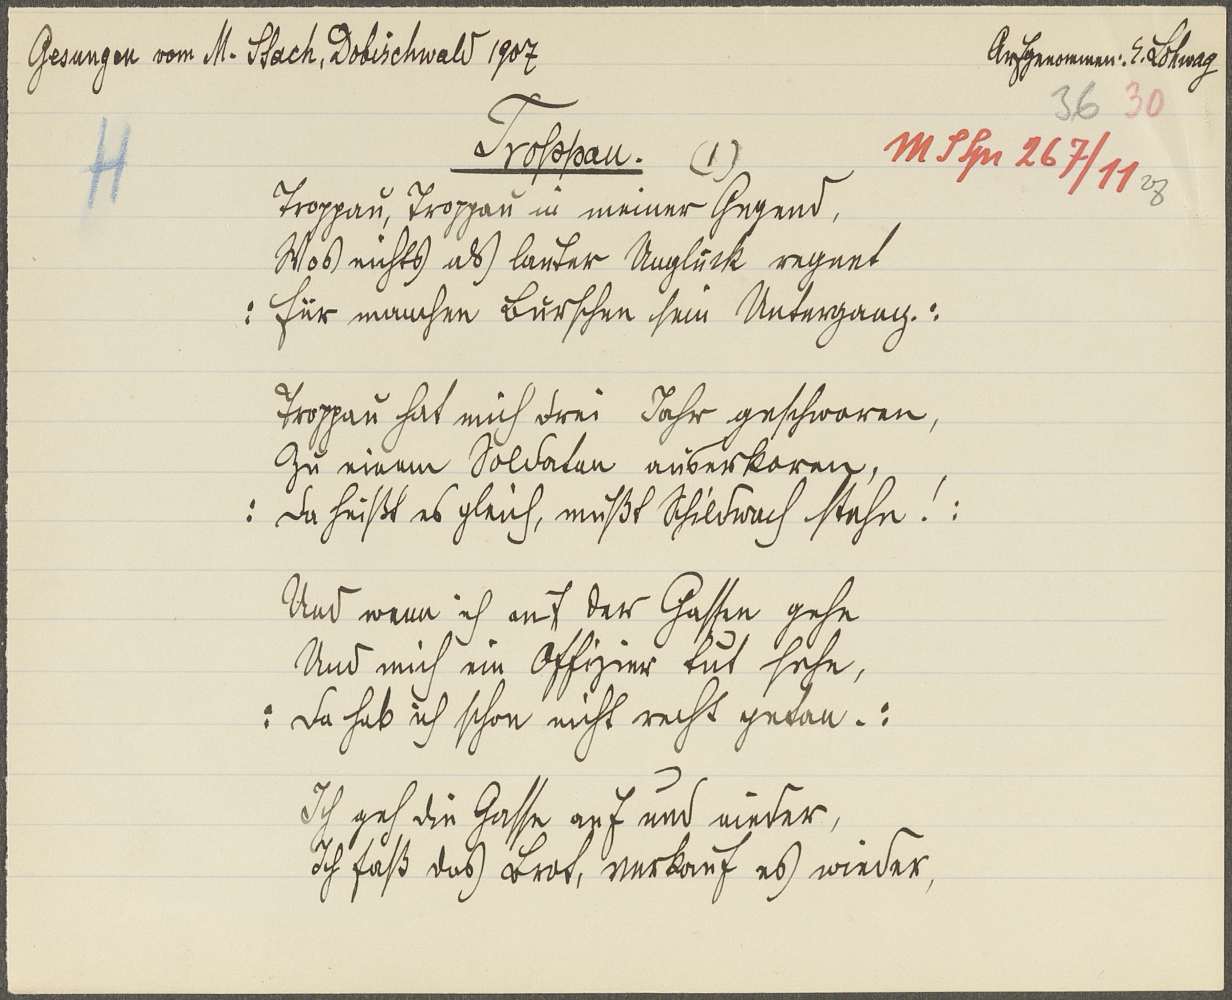 Gesungen vom M. Stach, Dobischwald 1907
Aufgenommen: E. Lohwag
36 30
H
Troppau. (1)
M S Spr 267/11
Troppau, Troppau in meiner Gegend,
Wos nichts als lauter Unglück regnet
: Für manchen Burschen sein Untergang. :
Troppau hat mich drei Jahr geschworen,
Zu einem Soldaten auserkoren,
: Da heißt es gleich, mußt Schildwach stehn! :
Und wenn ich auf der Gassen gehe
Und mich ein Offizier tut sehe,
: Da hab ich schon nicht recht getan. :
Ich geh die Gasse auf und nieder,
Ich faß das Brot, verkauf es wieder,